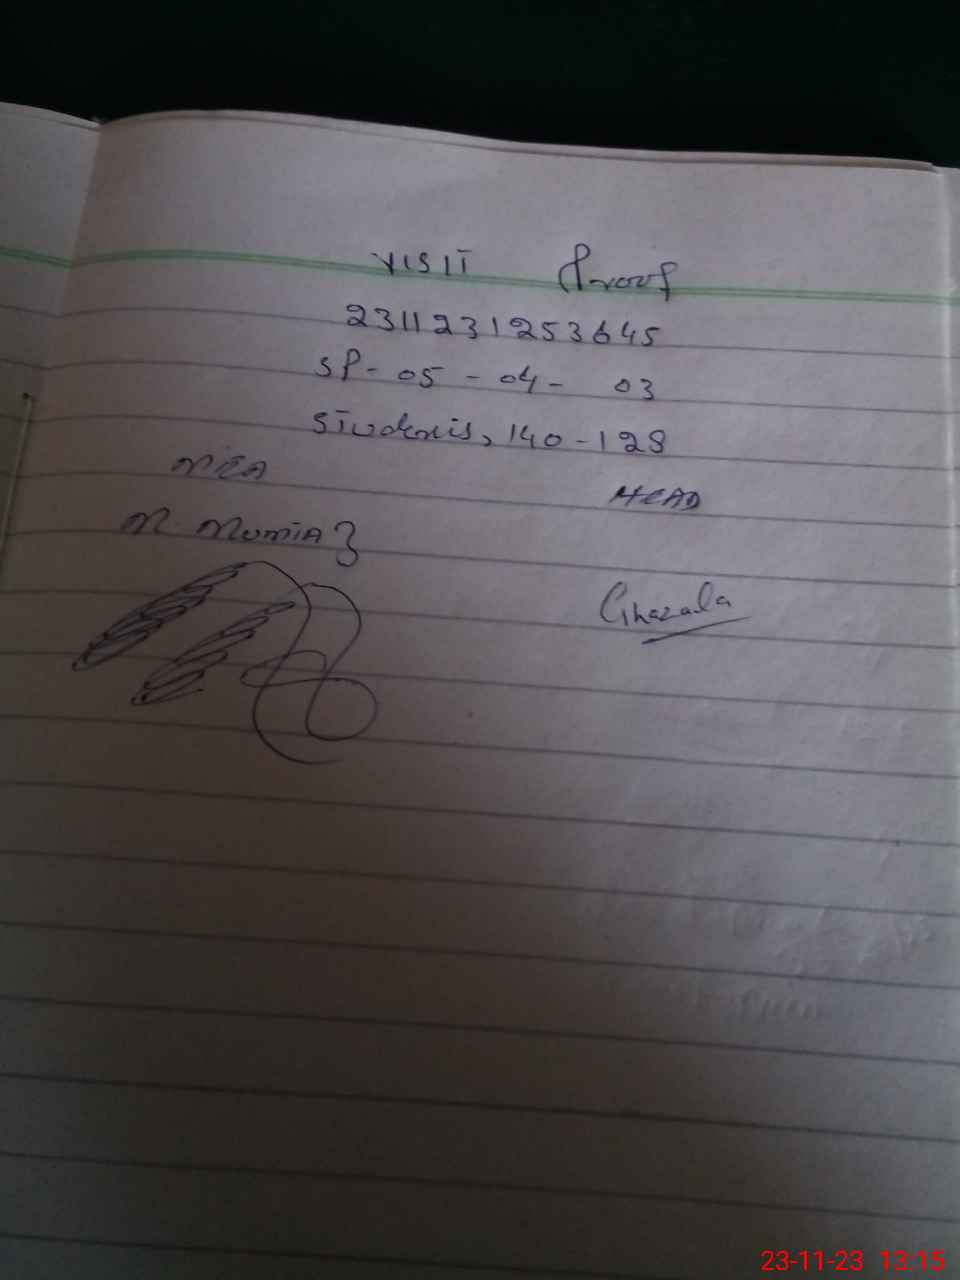 VISIT Proof
2311231253645
SP-05-04-03
Students, 140-128
MEA HEAD
M. MumTAz
Ghazala
23-11-23 13:15